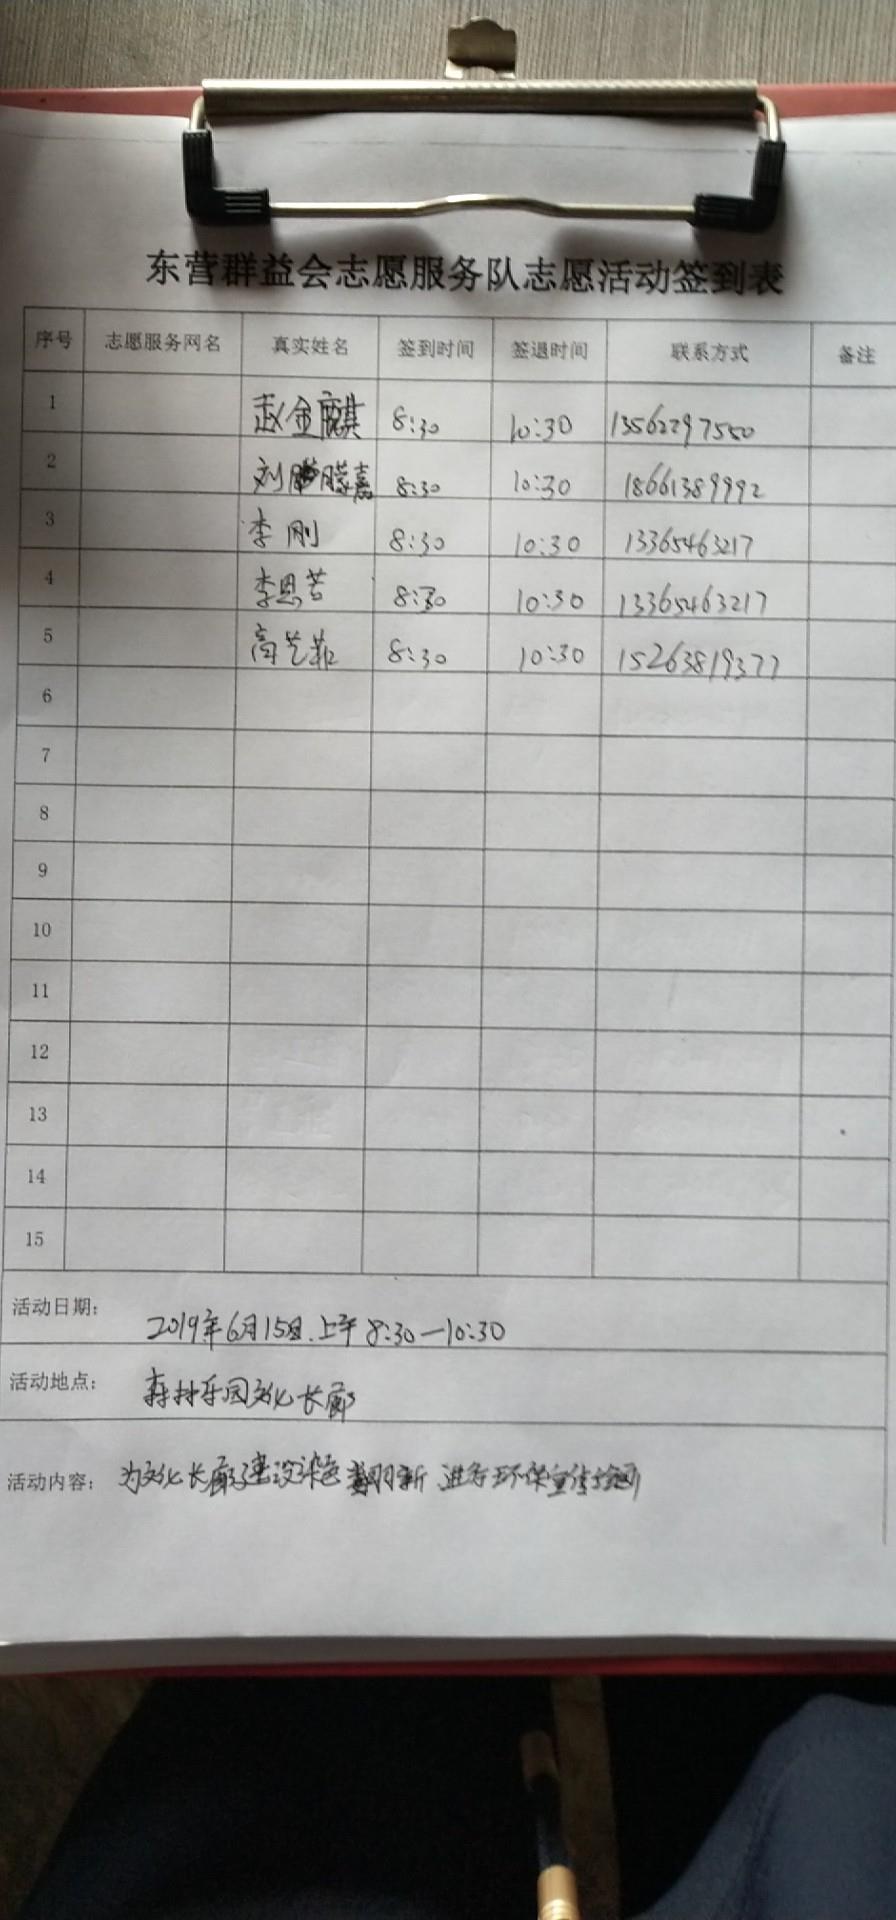 东营群益会志愿服务队志愿活动签到表
序号 志愿服务网名 真实姓名 签到时间 签退时间 联系方式 备注
1 赵金麒 8:30 10:30 13562297550
2 刘朦嘉 8:30 10:30 18661389992
3 李刚 8:30 10:30 13365463217
4 李思苦 8:30 10:30 13365463217
5 高艺菲 8:30 10:30 15263819377
6
7
8
9
10
11
12
13
14
15
活动日期: 2019年6月15日.上午8:30—10:30
活动地点: 森林乐园文化长廊
活动内容: 为文化长廊建设染色 翻新 进行环保宣传绘画